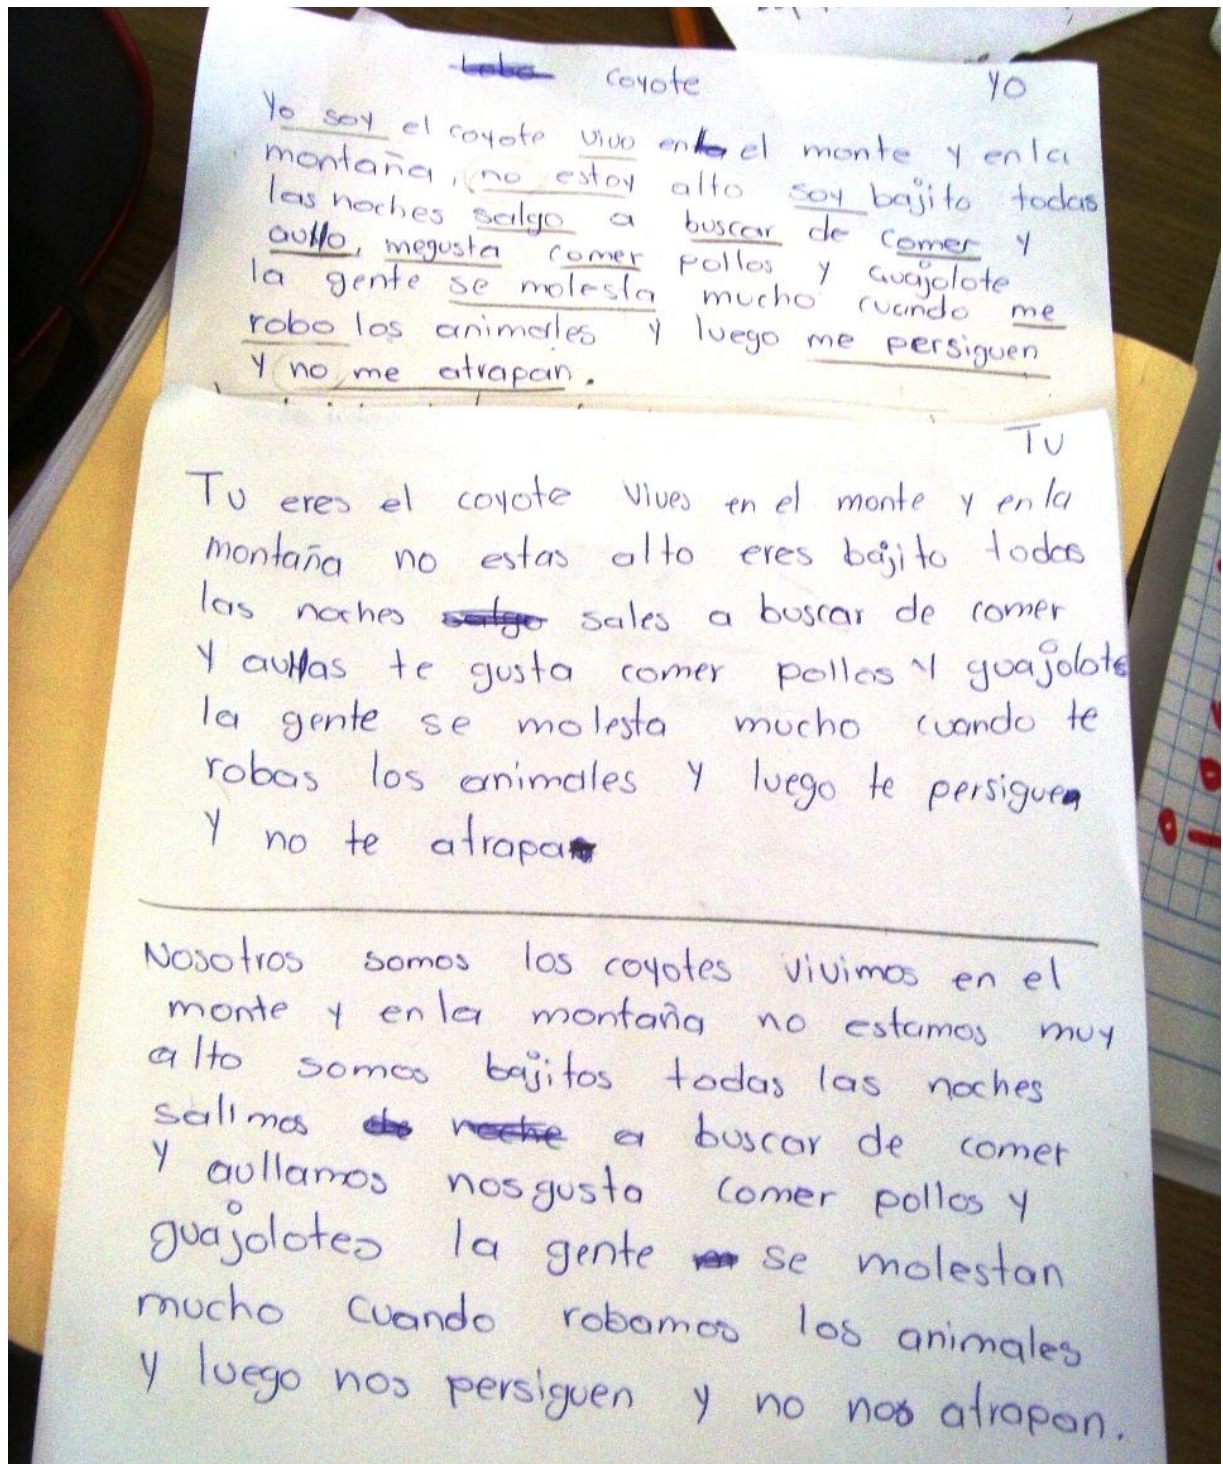 Coyote YO
Yo soy el coyote vivo en el monte y en la
montaña, no estoy alto soy bajito todas
las noches salgo a buscar de comer y
aullo, me gusta comer pollos y Guajolote
la gente se molesta mucho cuando me
robo los animales y luego me persiguen
y no me atrapan.
TU
Tu eres el coyote vives en el monte y en la
montaña no estas alto eres bajito todas
las noches sales a buscar de comer
y aullas te gusta comer pollos y guajolote
la gente se molesta mucho cuando te
robas los animales y luego te persiguen
y no te atrapan
Nosotros somos los coyotes vivimos en el
monte y en la montaña no estamos muy
alto somos bajitos todas las noches
salimos a buscar de comer
y aullamos nos gusta comer pollos y
guajolotes la gente se molestan
mucho cuando robamos los animales
y luego nos persiguen y no nos atrapan.